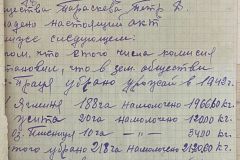 щества Параскева Петр Д.
ладено настоящий акт
ниже следующем:
том, что сего числа комисия
тановил, что в зем. обществи
Праця убрано урожай в 1942г.
Ячменя 188га намолочено 19660 кг.
Жита 20га намолочено 12000 кг.
Пшеница 10га —„— 5400 кг.
того убрано 218га намолочено